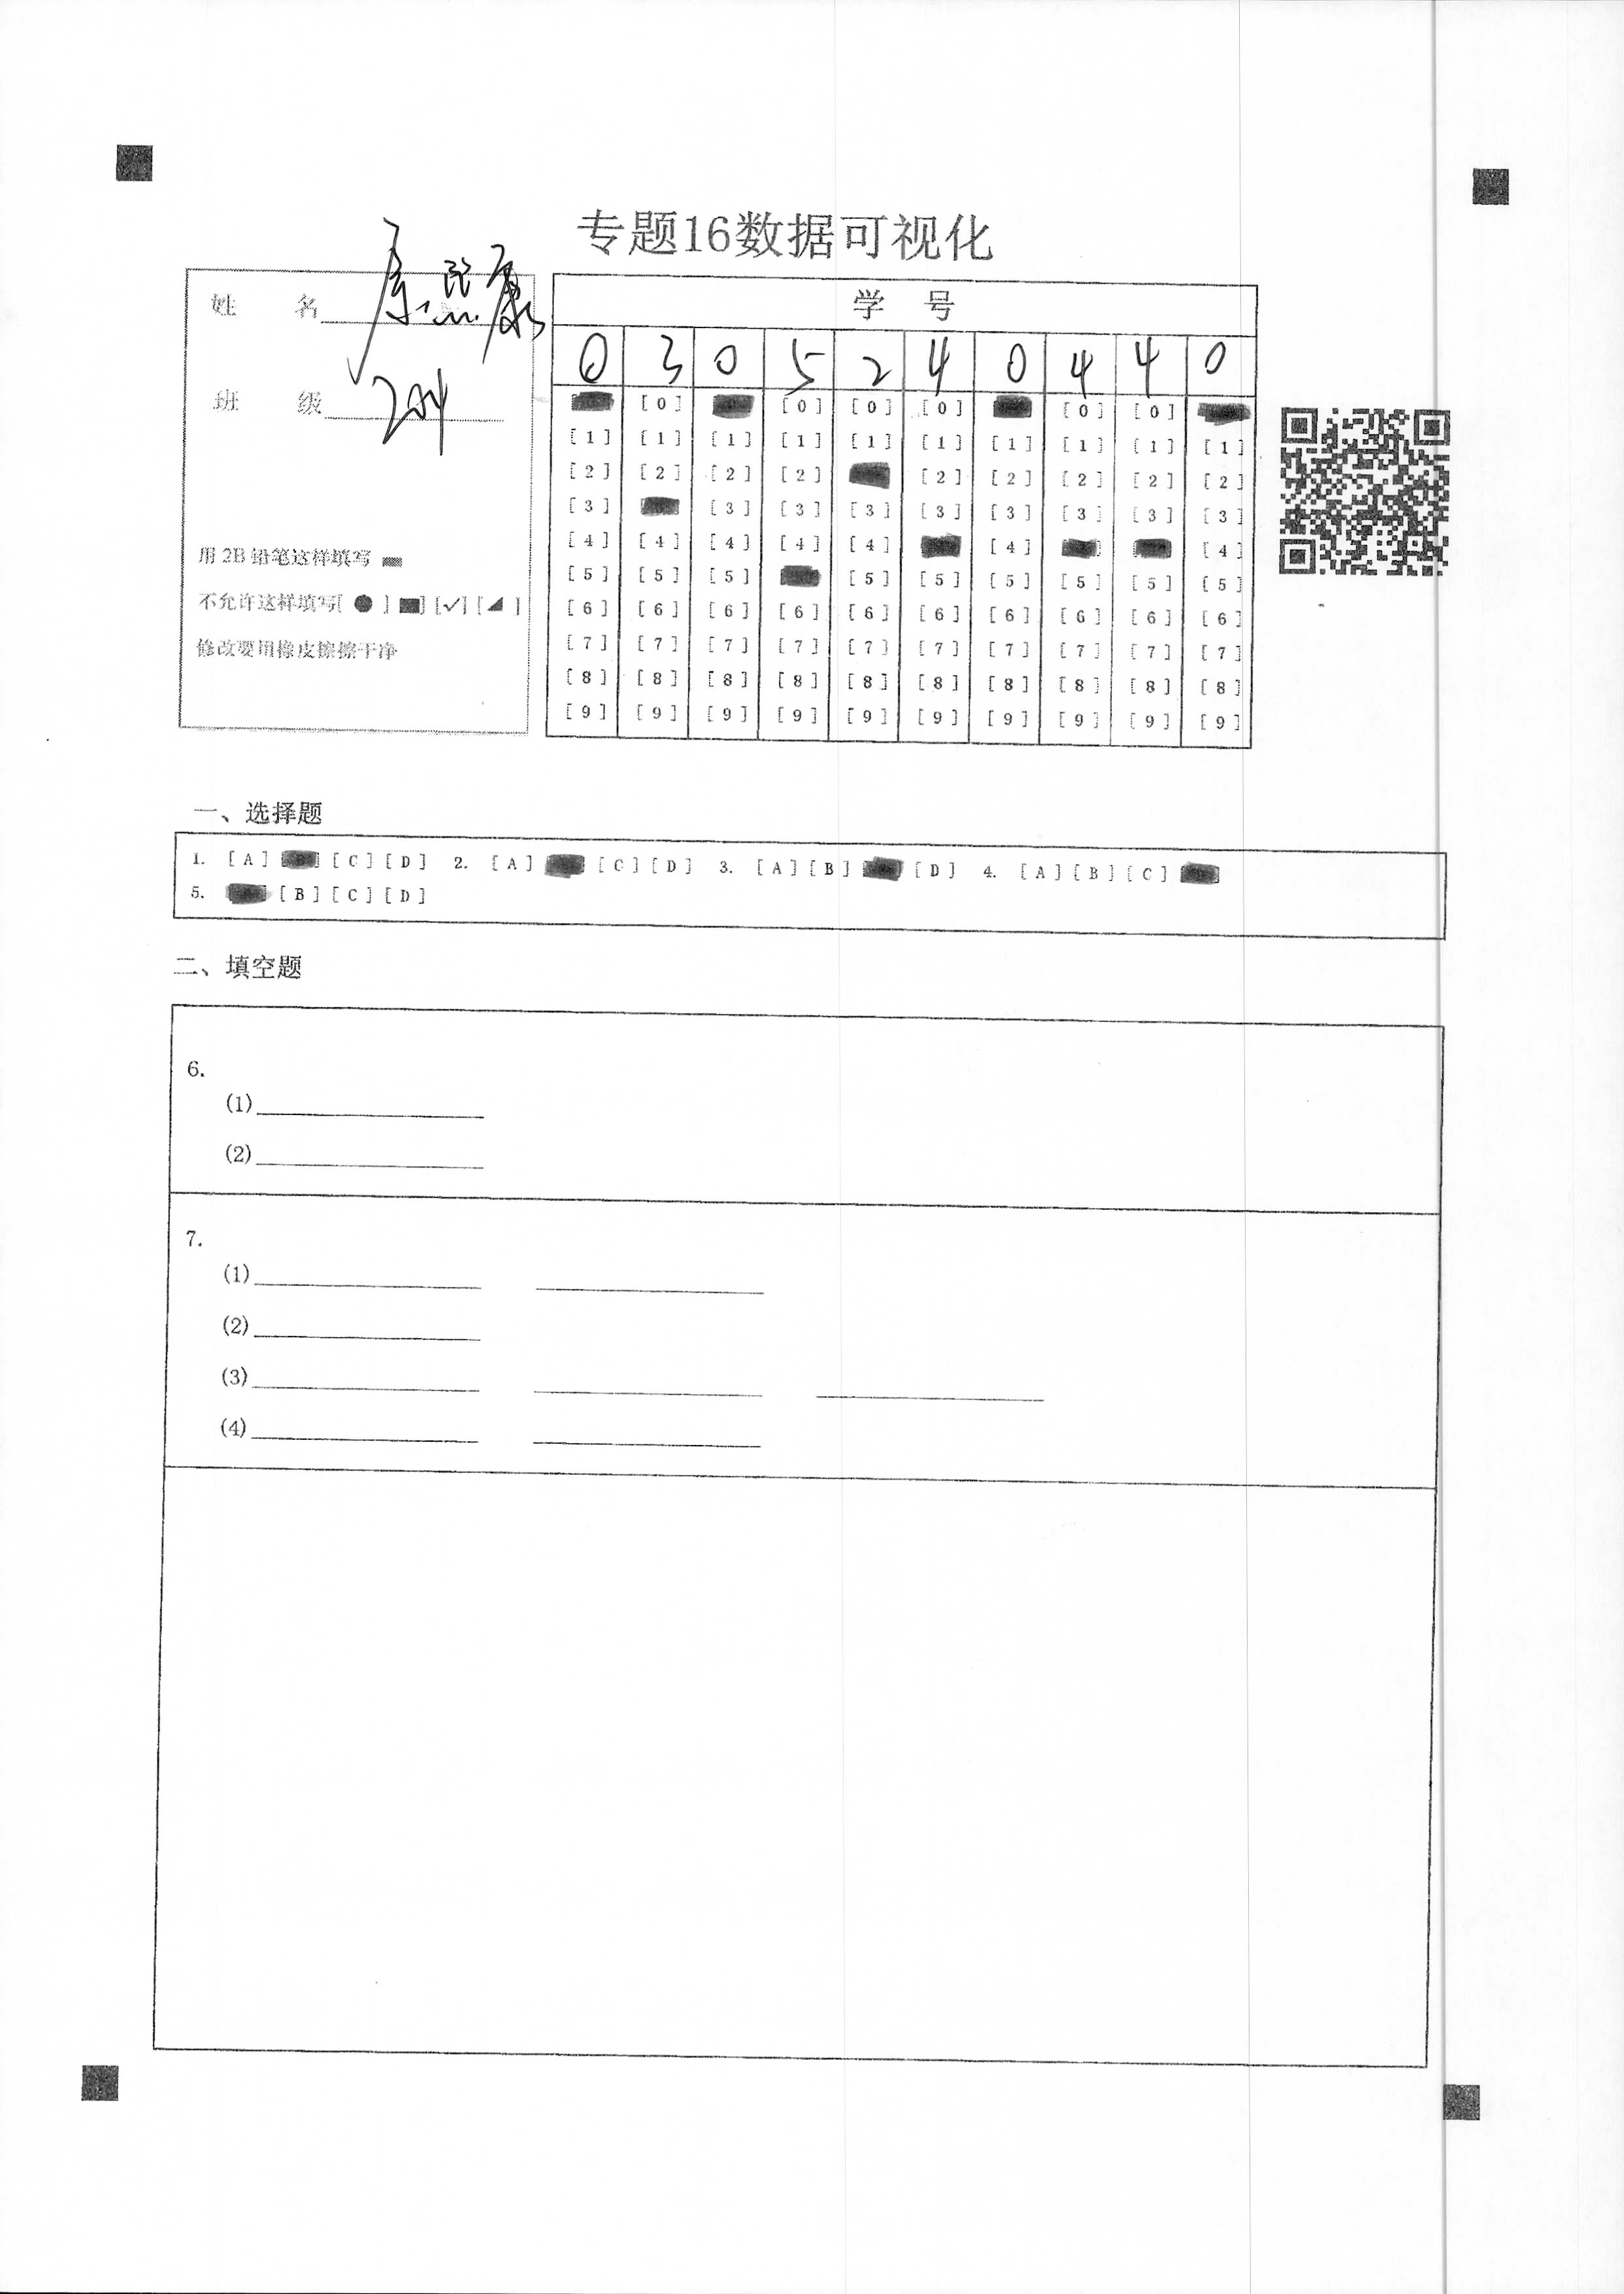 专题16数据可视化
姓 名
班 级 204
用 2B 铅笔这样填写
不允许这样填写[ ● ] [✓] [◢ ]
修改要用橡皮擦擦干净
学 号
0 3 0 5 2 4 0 4 4 0
[0] [0] [0] [0] [0] [0]
[1] [1] [1] [1] [1] [1] [1] [1] [1] [1]
[2] [2] [2] [2] [2] [2] [2] [2] [2]
[3] [3] [3] [3] [3] [3] [3] [3] [3]
[4] [4] [4] [4] [4] [4] [4]
[5] [5] [5] [5] [5] [5] [5] [5] [5]
[6] [6] [6] [6] [6] [6] [6] [6] [6] [6]
[7] [7] [7] [7] [7] [7] [7] [7] [7] [7]
[8] [8] [8] [8] [8] [8] [8] [8] [8] [8]
[9] [9] [9] [9] [9] [9] [9] [9] [9] [9]
一、选择题
1. [A] [C] [D] 2. [A] [C] [D] 3. [A] [B] [D] 4. [A] [B] [C]
5. [B] [C] [D]
二、填空题
6.
(1)
(2)
7.
(1)
(2)
(3)
(4)